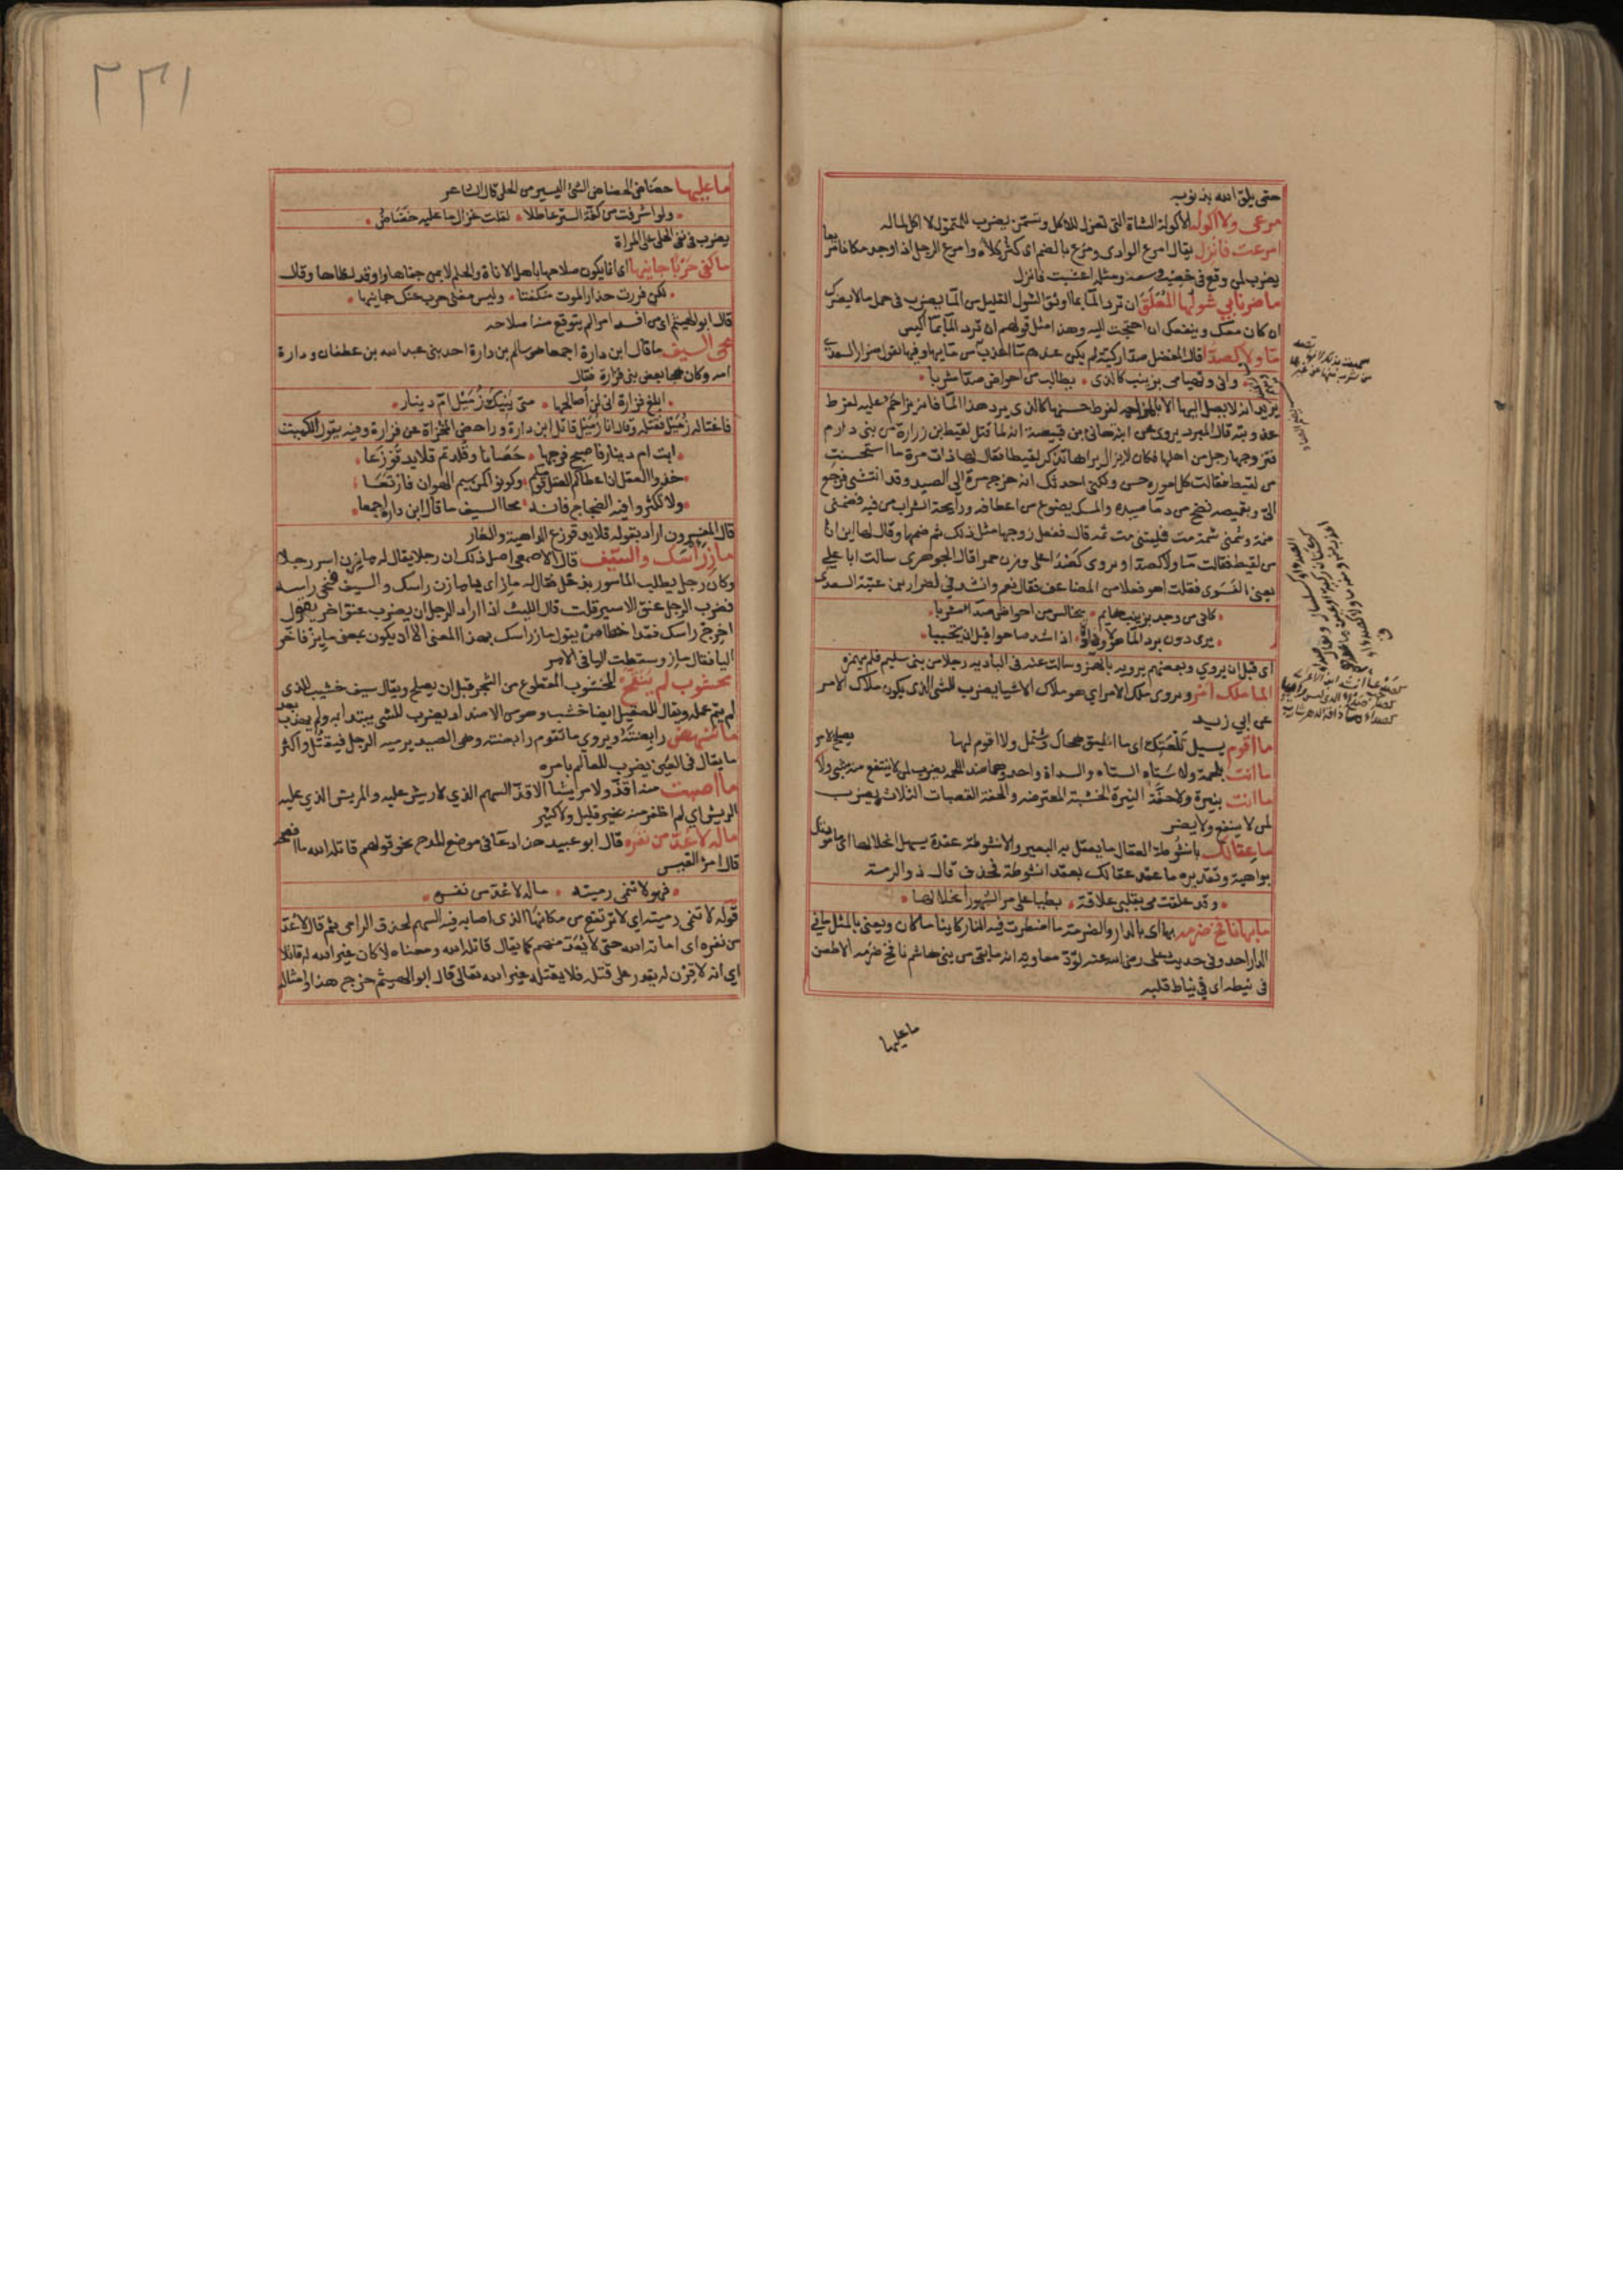 حتى يلقى الله بذنوبه
مرعى ولا أكوله الأكولة الشاة التي تعزل للاكل وتسمن يضرب للمتمول لا اكل لماله
امرعت فانزل يقال امرع الوادي ومرع بالضم اى كثر كلاؤه وامرع الرجل اذا وجد مكانا مريعا
يضرب لمن وقع في خصب وسعة ومثله اعشبت فانزل
ما ضر نابي شولها المعلق ان ترد الما بما اوثق الشول القليل من الما يضرب في حمل ما لا يضرك
ان كان معك وينفعك ان احتجت اليه وهذا مثل قولهم ان ترد الما بما اكيس
ما ولا كصدا قال المفضل صدا ركية لم يكن عندهم ما اعذب من مايها وفيها يقول ضرار السعدي
واني وتهيامي بزينب كالذي • يطالب من احواض صدا مشربا •
يريد انه لا يصل اليها الا بالمزاحمة لفرط حسنها كالذي يرد هذا الما فانه يزاحم عليه لفرط
عذوبته قال المبرد يروى عن ابنة هانئ بن قبيصة انه لما قتل لقيط بن زرارة من بني دارم
فتزوجها رجل من اهلها فكان لا يزال يراها تذكر لقيطا فقال لها ذات مرة ما استحسنت
من لقيط فقالت كل اموره حسن ولكني احدثك انه خرج مرة الى الصيد وقد انتشى فرجع
الي وبقميصه نضح من دما صيده والمسك يضوع من اعطافه ورايحة الشراب من فيه فضمني
ضمة وشمني شمة فليتني مت ثمه قال ففعل زوجها مثل ذلك ثم ضمها وقال لها اين انا
من لقيط فقالت ما ولا كصدا ويروى كصدا على وزن حمرا قال الجوهري سالت ابا علي
يعني الفسوي فقلت اهو فعلا من المضاعف فقال نعم وانشدني لضرار بن عتبة السعدي
• كاني من وجد بزينب هايم • يخالس من احواض صدا مشربا •
• يرى دون برد الما هولا وذادة • اذا اشتد صاحوا قبل ان يتحببا •
اى قبل ان يروي وبعضهم يرويه بالهمز وسالت عنه في البادية رجلا من بني سليم فلم يهمزه
الما ملك امر ويروى ملك الامر اي هو ملاك الاشيا يضرب للشي الذي يكون ملاك الامر
عن ابي زيد
ما اقوم بسيل تلعتك اى ما اطيق هجاك وشتمك ولا اقوم لها
ما انت بلحمة ولا ستاه الستاه والسداة واحد وهما ضد اللحمة يضرب لمن لا ينتفع منه بشي ولا يصلح لامر
ما انت بنيرة ولا حفة النيرة الخشبة المعترضة والحفة القصبات الثلاث يضرب
لمن لا ينفع ولا يضر
ما عقالك بانشوطة العقال ما يعقل به البعير والانشوطة عقدة يسهل انحلالها اى ما مودتك
بواهية وتقديره ما عقد عقالك بعقد انشوطة فحذف قال ذو الرمة
• وقد علقت مي بقلبي علاقة • بطيا على مر الشهور انحلالها •
ما بها نافخ ضرمه بها اى بالدار والضرمة ما اضطرمت فيه النار كاينا ما كان ويعنى بالمثل ما في
الدار احد وفي حديث علي رضي الله عنه لود معاوية انه ما بقي من بني هاشم نافخ ضرمة الا طعن
في نيطه اى في نياط قلبه
ما عليها
٢٣١
ما عليها خضاض الخضاض الشئ اليسير من الحلي قال الشاعر
• ولو اشرفت من كفة الستر عاطلا • لقلت غزال ما عليه خضاض •
يضرب في نفي الحلي عن المراة
ما كفى حربا جانيها اى انما يكون صلاحها باهل الاناة والحلم لا بمن جناها واوقد لظاها وقال
• لكن فررت حذار الموت منكفتا • وليس مغني حرب عنك جانيها •
قال ابو الهيثم اى من افسد امرا لم يتوقع منه اصلاحه
محى السيف ما قال ابن دارة اجمعا هو سالم بن دارة احد بني عبد الله بن غطفان ودارة
امه وكان هجا بعض بني فزارة فقال
• ابلغ فزارة اني لن أصالحها • حتى ينيك زميل ام دينار •
فاغتاله زميل فقتله وقال انا زميل قاتل ابن دارة وراحض المخزاة عن فزارة وفيه يقول الكميت
• ابت ام دينار فاصبح فرجها • حصانا وقلدتم قلايد قوزعا •
• خذوا العقل ان اعطاكم العقل قومكم • وكونوا كمن سيم الهوان فارتعا •
• ولا تكثروا فيه الضجاج فانه • محا السيف ما قال ابن دارة اجمعا •
قال المفسرون اراد بقوله قلايد قوزع الداهية والعار
ماز راسك والسيف قال الاصمعي اصل ذلك ان رجلا يقال له مازن اسر رجلا
وكان رجل يطلب الماسور بذحل فقال له ماز اى يا مازن راسك والسيف فنحى راسه
فضرب الرجل عنق الاسير قلت قال الليث اذا اراد الرجل ان يضرب عنق اخر يقول
اخرج راسك فقد اخطا حتى يقول ماز راسك بهذا المعنى الا ان يكون بمعنى مايز فاخر
اليا فقال ماز وسقطت اليا في الامر
مخشوب لم ينقح المخشوب المقطوع من الشجر قبل ان يصلح ويقال سيف خشيب للذي
لم يتم عمله ويقال للصقيل ايضا خشب وهو من الاضداد يضرب للشي يبتدا به ولم يهذب بعد
ما تنهض رابضته ويروي ما تقوم رابضته وهي الصيد يرميه الرجل فيقتل واكثر
ما يقال في العين يضرب للعالم بامره
ما اصبت منه اقذ ولا مريشا الاقذ السهم الذي لا ريش عليه والمريش الذي عليه
الريش اي لم اظفر منه بخير قليل ولا كثير
ماله لا عد من نفره قال ابو عبيد هذا دعا في موضع المدح نحو قولهم قاتله الله ما افصحه
قال امرؤ القيس
• فهو لا تنمي رميته • ماله لا عد من نفره •
قوله لا تنمي رميته اي لا ترتفع من مكانها الذي اصابه فيه السهم لحذق الرامي ثم قال لا عد
من نفره اى اماته الله حتى لا يعد منهم كما يقال قاتله الله ومعناه لا كان غير الله له قاتلا
اي انه لا قرن له يقدر على قتله فلا يقتله غير الله تعالى قال ابو الهيثم خرج هذا وامثاله